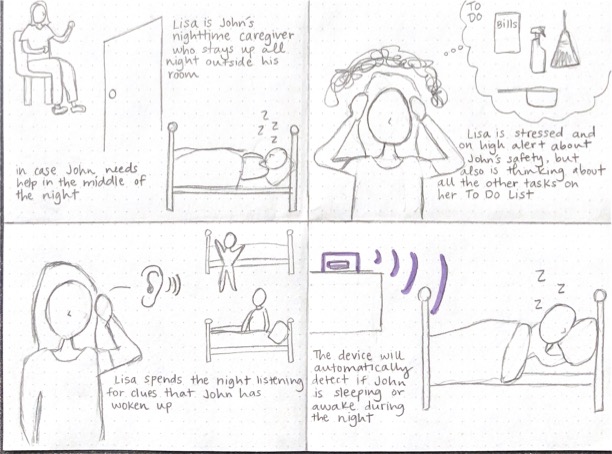 Lisa is John's
nighttime caregiver
who stays up all
night outside his
room
z
z
z
z
in case John needs
help in the middle of
the night
TO
DO
Bills
Lisa is stressed and
on high alert about
John's safety, but
also is thinking about
all the other tasks on
her To Do List
Lisa spends the night listening
for clues that John has
woken up
z
z
z
The device will
automatically
detect if John
is sleeping or
awake during
the night